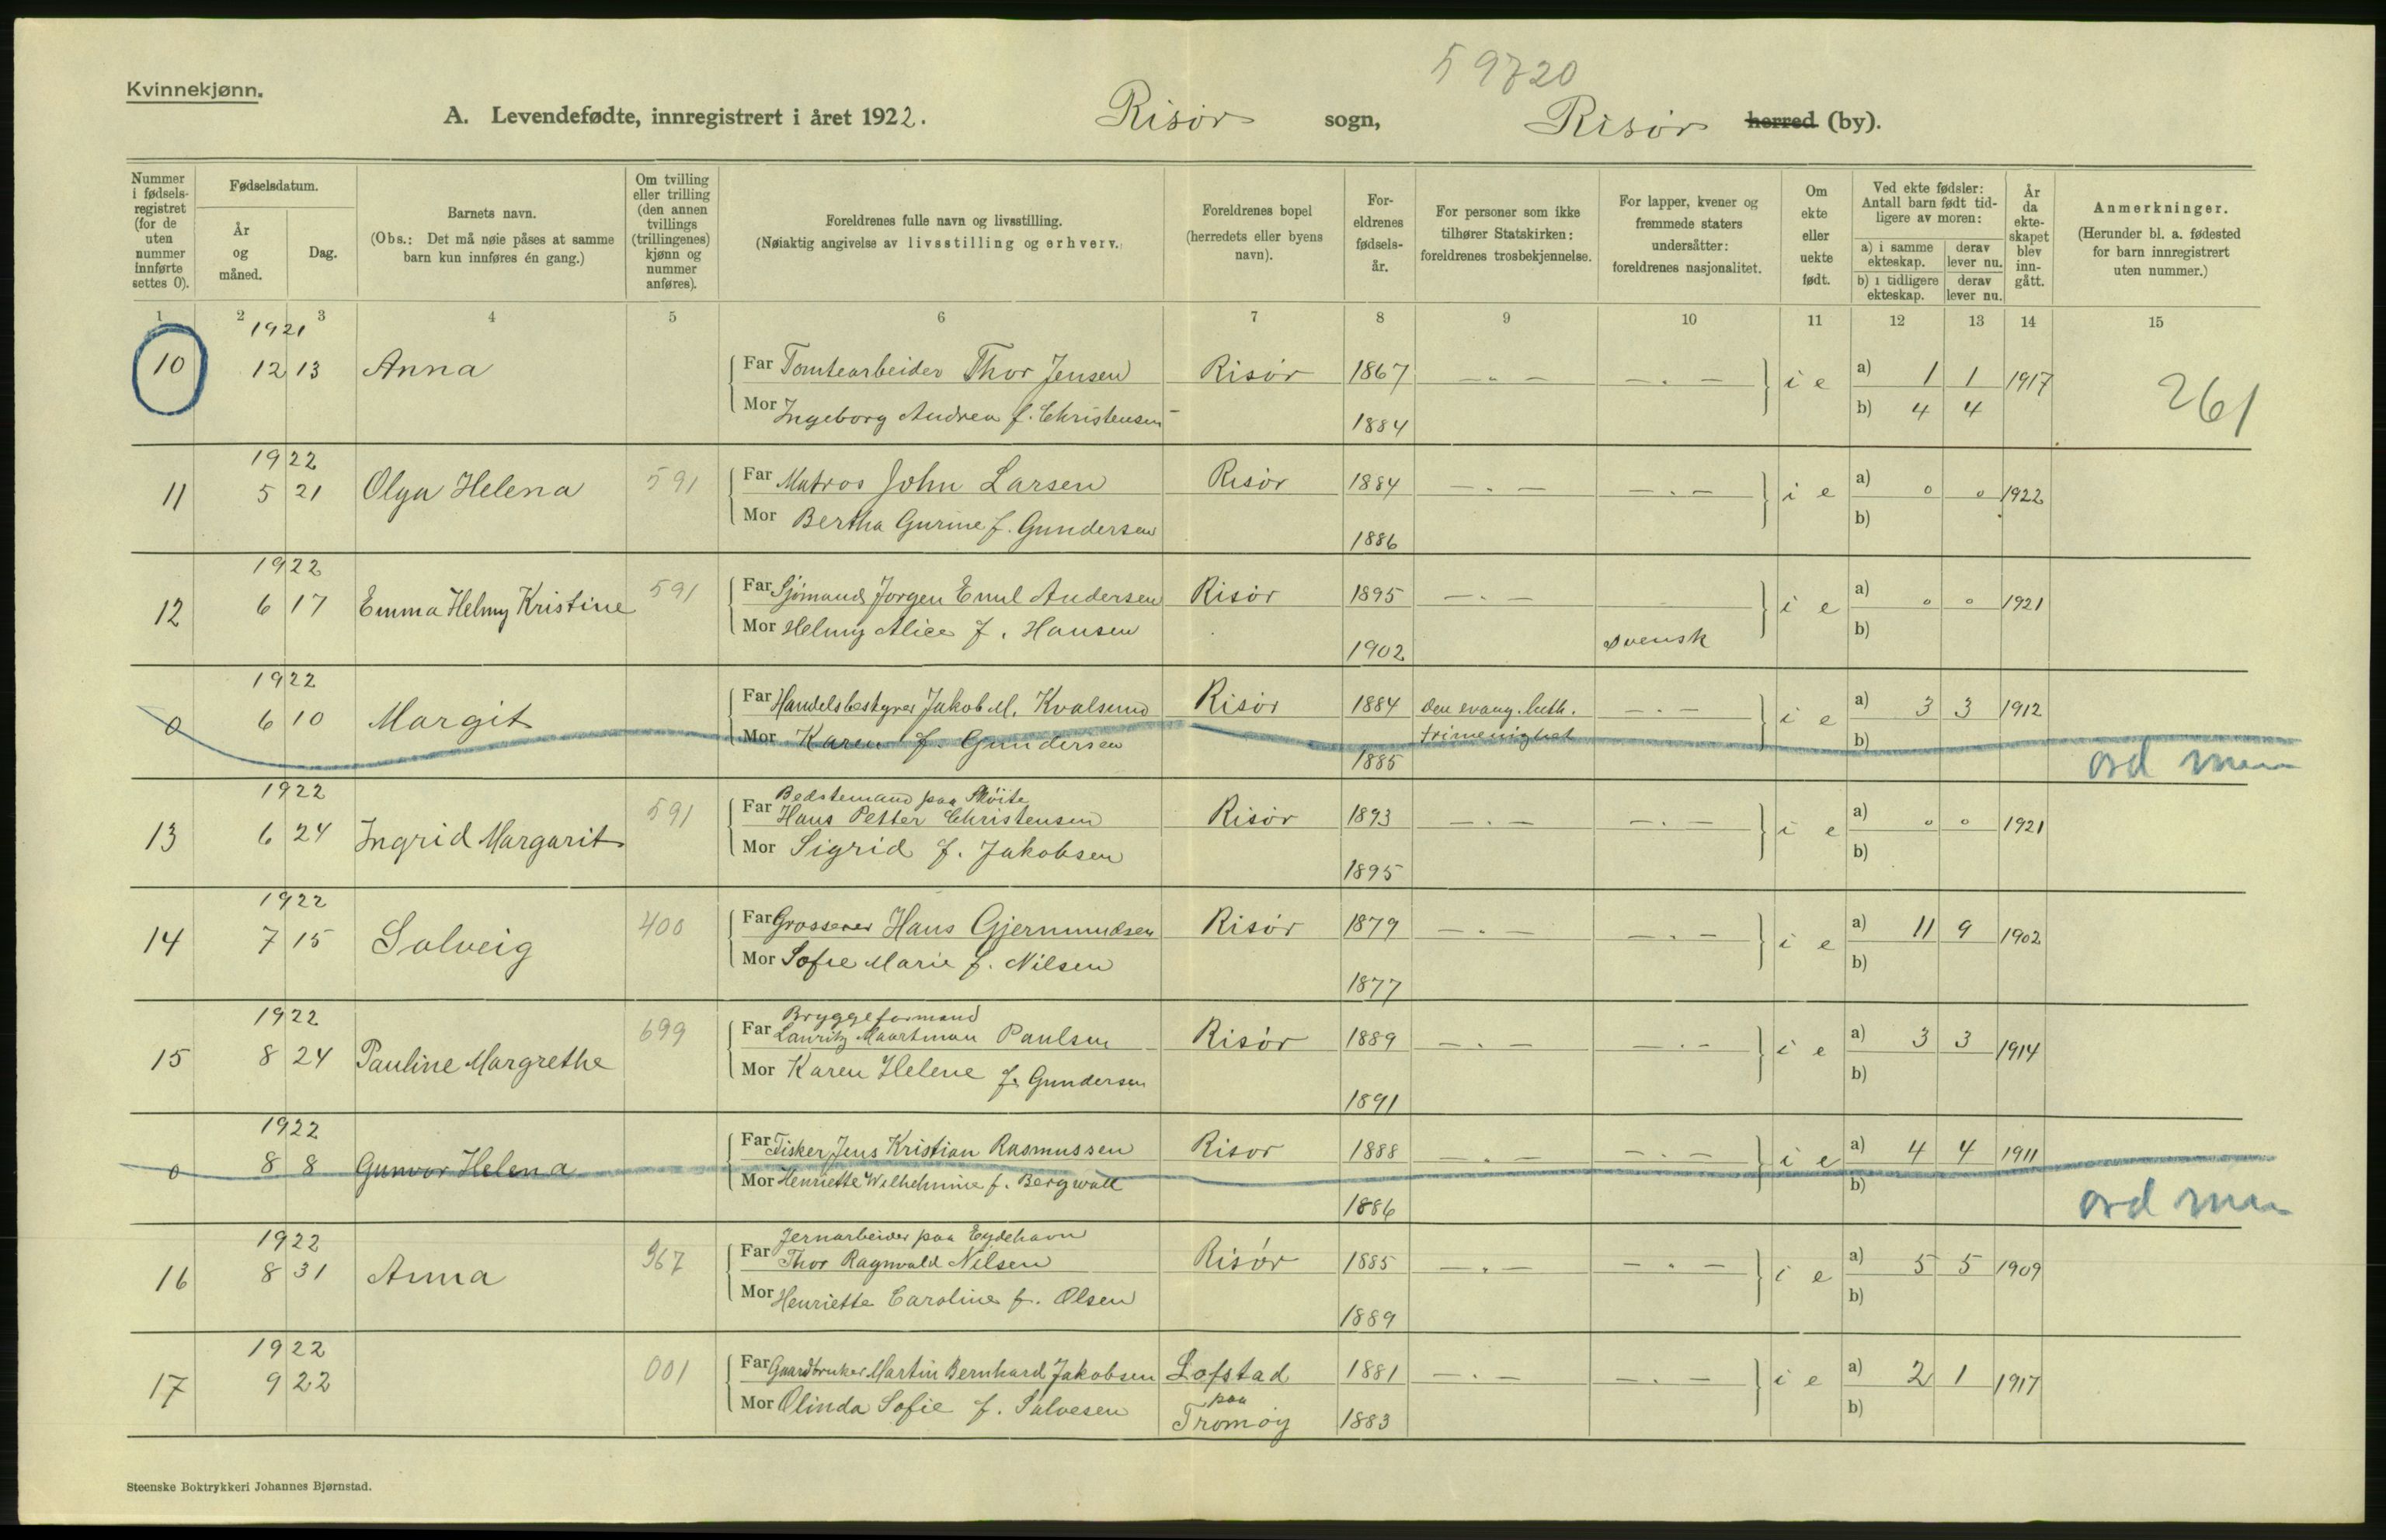 59720
Kvinnekjønn.
A. Levendefødte, innregistrert i året 1922. Risør sogn, Risør herred (by).
Nummer i fødsels-registret (for de uten nummer innførte settes 0).
Fødselsdatum.
År og måned.
Dag.
Barnets navn.
(Obs.: Det må nøie påses at samme barn kun innføres én gang.)
Om tvilling eller trilling (den annen tvillings (trillingenes) kjønn og nummer anføres).
Foreldrenes fulle navn og livsstilling.
(Nøiaktig angivelse av livsstilling og erhverv.)
Foreldrenes bopel (herredets eller byens navn).
For-eldrenes fødsels-år.
For personer som ikke tilhører Statskirken: foreldrenes trosbekjennelse.
For lapper, kvener og fremmede staters undersåtter: foreldrenes nasjonalitet.
Om ekte eller uekte født.
Ved ekte fødsler: Antall barn født tid-ligere av moren:
a) i samme ekteskap. derav lever nu.
b) i tidligere ekteskap. derav lever nu.
År da ekte-skapet blev inn-gått.
Anmerkninger.
(Herunder bl. a. fødested for barn innregistrert uten nummer.)
1 2 3 4 5 6 7 8 9 10 11 12 13 14 15
1921
10 12 13 Anna Far Tomtearbeider Thor Jensen Risør 1867 — . — — . — i e a) 1 1 1917 261
Mor Ingeborg Andrea f. Christensen 1884 b) 4 4
1922
11 5 21 Olga Helena 591 Far Matros John Larsen Risør 1884 — . — — . — i e a) 0 0 1922
Mor Bertha Gurine f. Gundersen 1886 b)
1922
12 6 17 Emma Helmy Kristine 591 Far Sjømand Jørgen Emil Andersen Risør 1895 — . — i e a) 0 0 1921
Mor Helmy Alice f. Hansen 1902 svensk b)
1922
0 6 10 Margit Far Handelsbestyrer Jakob M. Kvalsund Risør 1884 den evang. luth. — . — i e a) 3 3 1912
Mor Karen f. Gundersen 1885 frimenighet b)
ord
1922
13 6 24 Ingrid Margarit 591 Far Bedstemand paa Skøite
Hans Petter Christensen Risør 1893 — . — — . — i e a) 0 0 1921
Mor Sigrid f. Jakobsen 1895 b)
1922
14 7 15 Solveig 400 Far Grosserer Hans Gjermundsen Risør 1879 — . — — . — i e a) 11 9 1902
Mor Sofie Marie f. Nilsen 1877 b)
1922
15 8 24 Pauline Margrethe 699 Far Bryggeformand
Lauritz Maartman Paulsen Risør 1889 — . — — . — i e a) 3 3 1914
Mor Karen Helene f. Gundersen 1891 b)
1922
0 8 8 Gunvor Helena Far Fisker Jens Kristian Rasmussen Risør 1888 — . — — . — i e a) 4 4 1911
Mor Henriette Wilhelmine f. Bergwall 1886 b)
ord
1922
16 8 31 Anna 967 Far Jernarbeider paa Eydehavn
Thor Ragnvald Nilsen Risør 1885 — . — — . — i e a) 5 5 1909
Mor Henriette Caroline f. Olsen 1889 b)
1922
17 9 22 001 Far Gaardbruker Martin Bernhard Jakobsen Lofstad 1881 — . — — . — i e a) 2 1 1917
Mor Olinda Sofie f. Salvesen paa Tromøy 1883 b)
Steenske Boktrykkeri Johannes Bjørnstad.